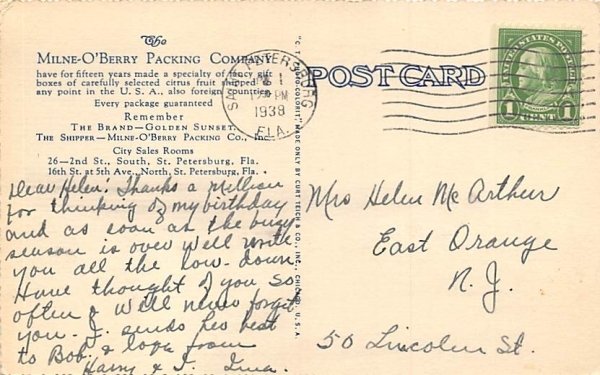 The
MILNE-O'BERRY PACKING COMPANY
have for fifteen years made a specialty of fancy gift
boxes of carefully selected citrus fruit shipped to
any point in the U. S. A., also foreign countries
Every package guaranteed
Remember
THE BRAND—GOLDEN SUNSET.
THE SHIPPER—MILNE-O'BERRY PACKING CO., INC.
City Sales Rooms
26—2nd St., South, St. Petersburg, Fla.
16th St. at 5th Ave., North, St. Petersburg, Fla.
Dear Helen: Thanks a Million
for thinking of my birthday
and as soon as the busy
season is over We'll write
you all the low-down.
Have thought of you so
often & Will never forget
you. J. sends his best
to Bob. & love from
Harry & J. Irma.
C. T. PHOTO-COLORIT. MADE ONLY BY CURT TEICH & CO., INC., CHICAGO, U. S. A.
SAINT PETERSBURG
1
PM
1938
FLA.
POST CARD
UNITED STATES POSTAGE
1 CENT 1
Mrs Helen McArthur
East Orange
N. J.
50 Lincoln St.